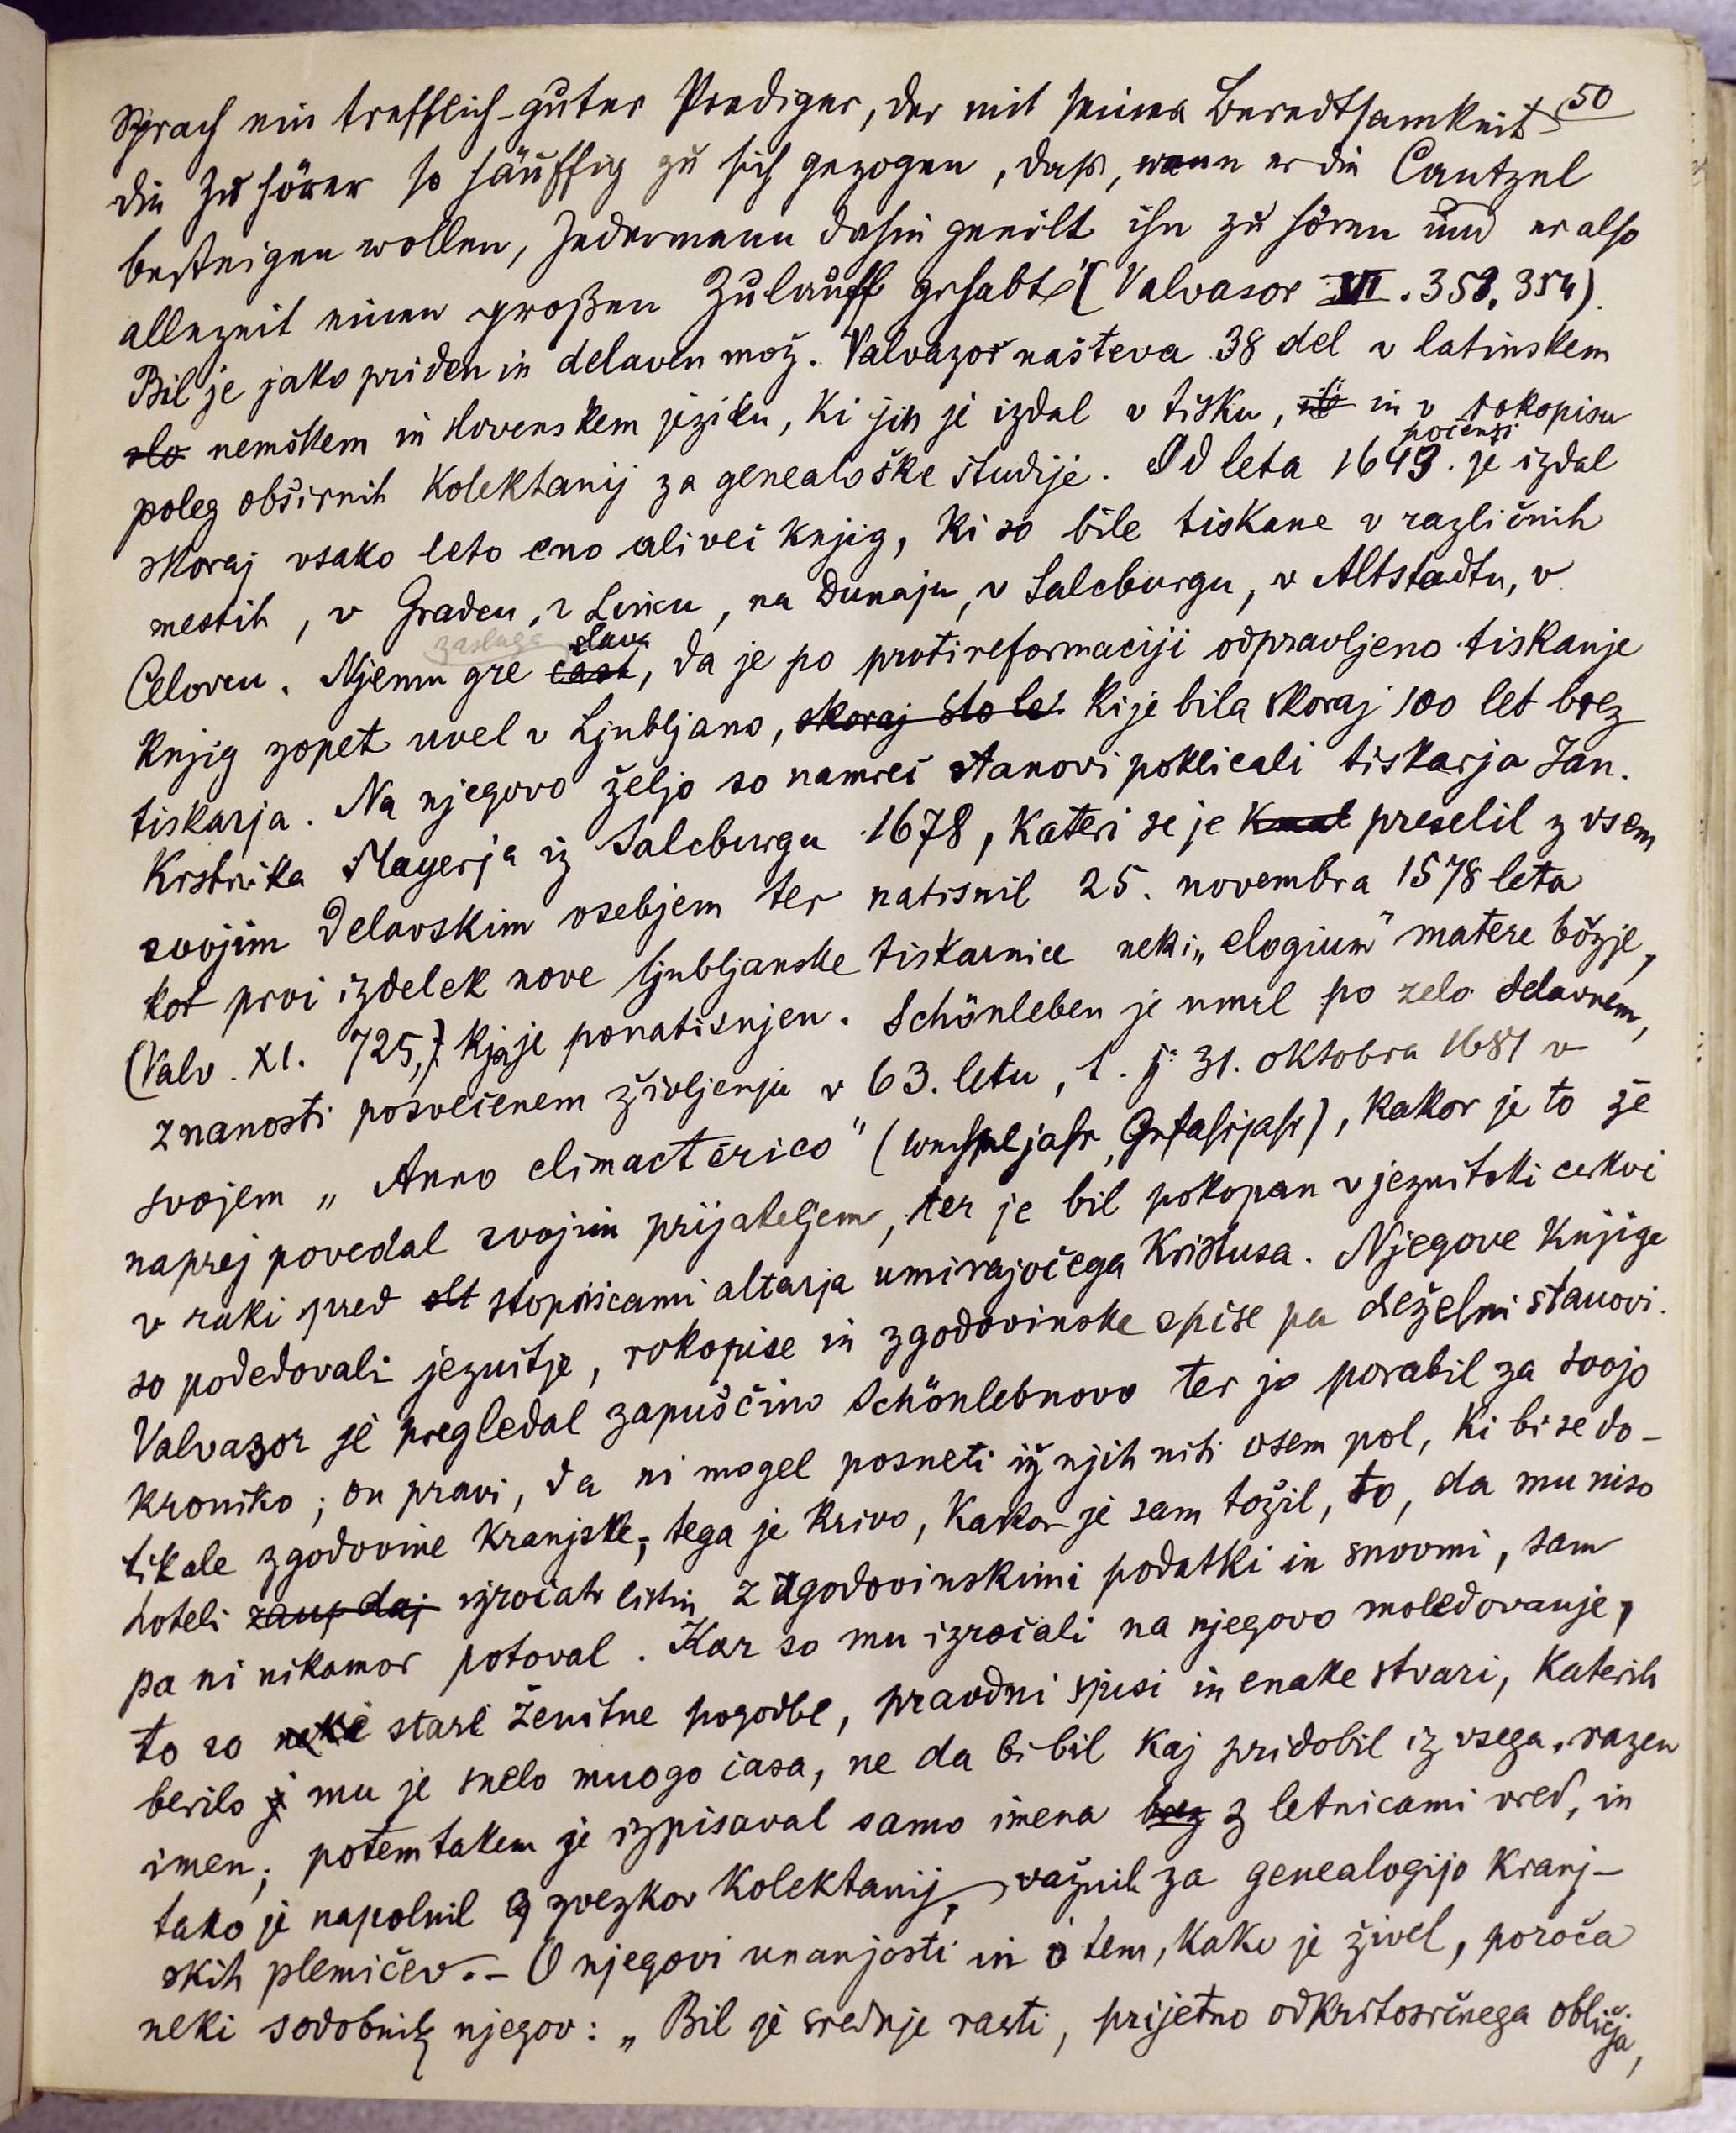 50
Sprach ein trefflich-guter Prediger, der mit seiner Beredtsamkeit
die Zuhörer so häuffig zu sich gezogen, daß, wann er die Cantzel
besteigen wollen, Jedermann dahin geeilt ihn zu hören und er also
allezeit einen großen Zulauff gehabt" (Valvasor VI. 353, 354).
Bil je jako priden in delaven mož. Valvazor našteva 38 del v latinskem
slo nemškem in slovenskem jeziku, ki jih je izdal v tisku, in v rokopisu
poleg obširnih kolektanij za genealoške študije. Od leta 1649. počenši je izdal
skoraj vsako leto eno ali več knjig, ki so bile tiskane v različnih
mestih, v Gradcu, v Lincu, na Dunaju, v Salcburgu, v Altstadtu, v
Celovcu. Njemu gre zasluga čast slava, da je po protireformaciji odpravljeno tiskanje
knjig zopet uvel v Ljubljano, skoraj sto let ki je bila skoraj 100 let brez
tiskarja. Na njegovo željo so namreč stanovi poklicali tiskarja Jan.
Krstnika Mayerja iz Salcburga 1678, kateri se je kmal preselil z vsem
svojim delavskim osebjem ter natisnil 25. novembra 1578 leta
kot prvi izdelek nove ljubljanske tiskarnice neki „elogium" matere božje,
(Valv. XI. 725,) kjer je ponatisnjen. Schönleben je umrl po zelo delavnem,
znanosti posvečenem življenju v 63. letu, t. j. 31. oktobra 1681 v
svojem „Anno climactérico" (Wechseljahr, Gefahrjahr), kakor je to že
naprej povedal svojim prijateljem, ter je bil pokopan v jezuitski cerkvi
v raki pred olt stopnicami altarja umirajočega Kristusa. Njegove knjige
so podedovali jezuitje, rokopise in zgodovinske spise pa deželni stanovi.
Valvazor je pregledal zapuščino Schönlebnovo ter jo porabil za svojo
kroniko; on pravi, da ni mogel posneti iz njih niti osem pol, ki bi se do-
tikale zgodovine kranjske; tega je krivo, kakor je sam tožil, to, da mu niso
hoteli zaup daj izročati listin z zgodovinskimi podatki in snovmi, sam
pa ni nikamor potoval. Kar so mu izročali na njegovo moledovanje,
to so neke stare ženitne pogodbe, pravdni spisi in enake stvari, katerih
berilo j mu je snelo mnogo časa, ne da bi bil kaj pridobil iz vsega, razen
imen; potemtakem je izpisaval samo imena brez z letnicami vred, in
tako je napolnil 9 zvezkov kolektanij, važnih za genealogijo kranj-
skih plemičev. – O njegovi unanjosti in o tem, kako je živel, poroča
neki sodobnik njegov: „Bil je srednje rasti, prijetno odkritosrčnega obličja,